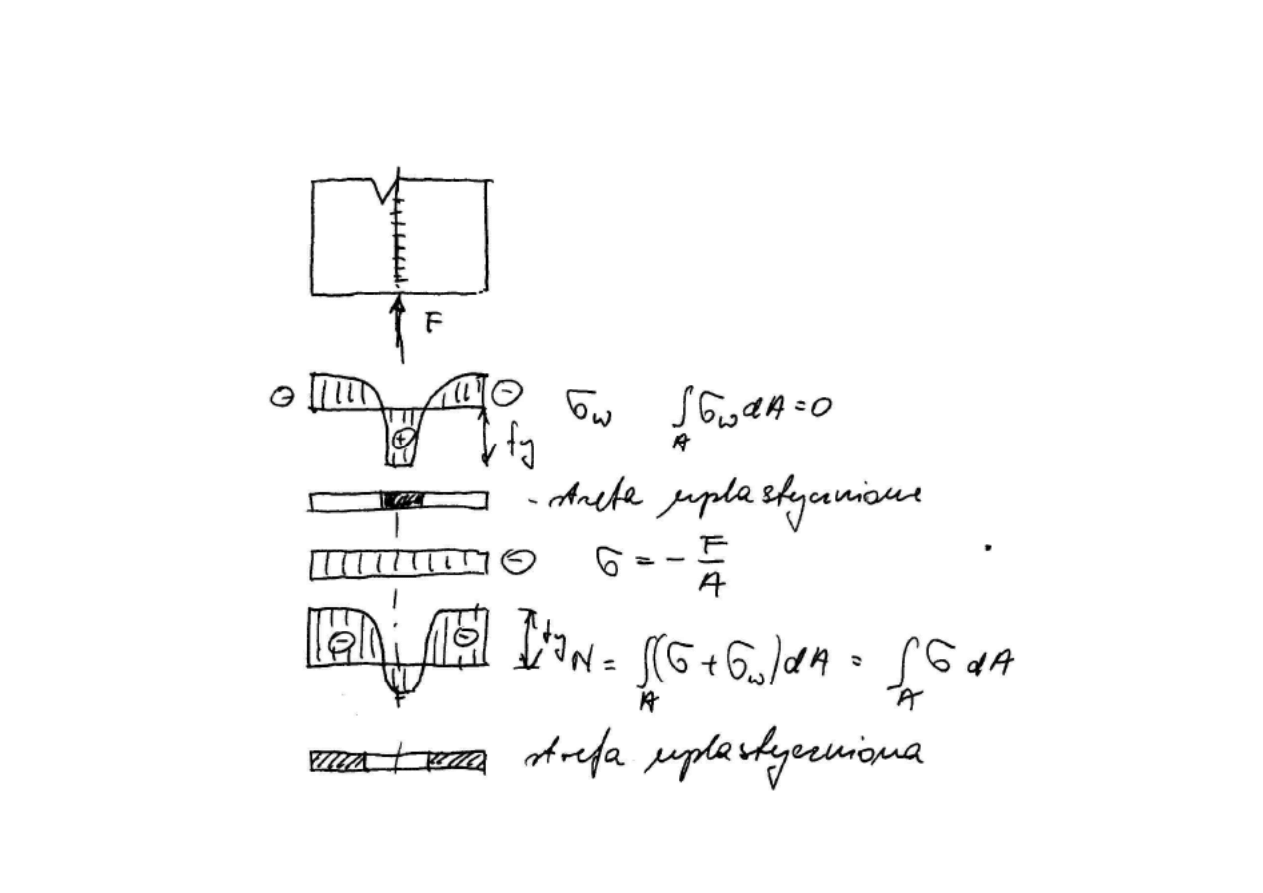 F
⊖ ⊖ σw ∫A σw dA = 0
⊕ fy
- strefa uplastycznione
⊖ σ = - F/A
⊖ ⊖ fy N = ∫A (σ + σw) dA = ∫A σ dA
strefa uplastyczniona